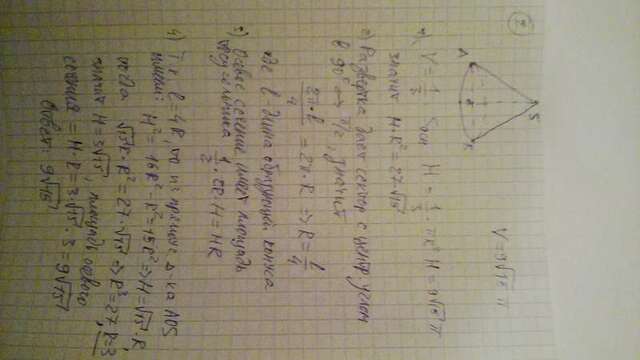 V = 9√15 π
S
A
K
1) V = 1/3 Sосн H = 1/3 · πR² H = 9√15 π
значит H·R² = 27·√15
2) Развертка дает сектор с центр углом
в 90° или π/2, значит
2π·l/4 = 2π·R ⇒ R = l/4
где l-длина образующей конуса
3) Осевое сечение имеет площадь
треугольника 1/2 · 2R·H = HR
4) Т.к l = 4R, то из прямоуг Δ-ка AOS
имеем: H² = 16R² - R² = 15R² ⇒ H = √15·R,
тогда √15·R·R² = 27·√15 ⇒ R³ = 27, R = 3
значит H = 3√15, площадь осевого
сечения = H·R = 3·√15·3 = 9√15
Ответ: 9√15